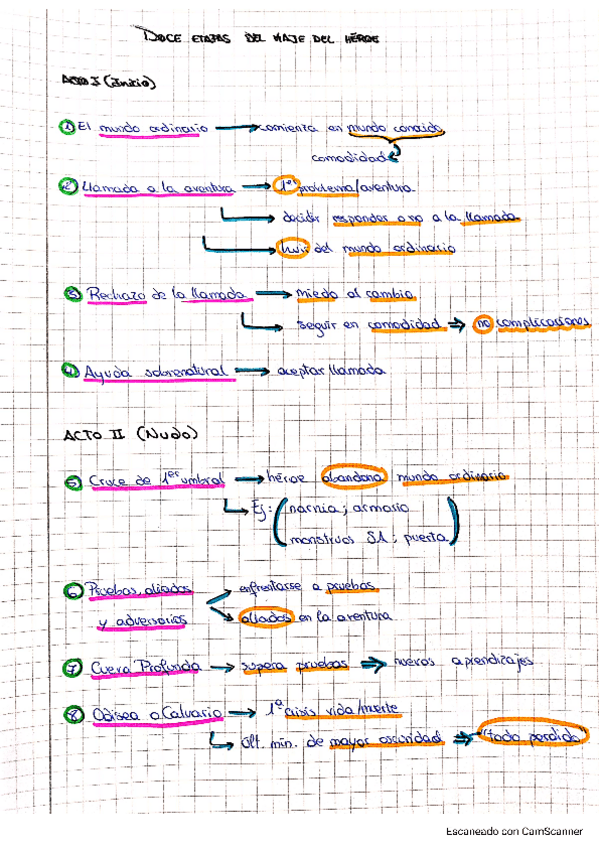 DOCE ETAPAS DEL VIAJE DEL HÉROE
ACTO I (Inicio)
① El mundo ordinario → comienza en mundo conocido
comodidad
② Llamada a la aventura → 1er problema/aventura.
decidir responder o no a la llamada
huir del mundo ordinario
③ Rechazo de la llamada → miedo al cambio
seguir en comodidad ⇒ no complicaciones
④ Ayuda sobrenatural → aceptar llamada
ACTO II (Nudo)
⑤ Cruce de 1er umbral → héroe abandona mundo ordinario
Ej: (narnia; armario
monstruos SA; puerta)
⑥ Pruebas, aliados → enfrentarse a pruebas
y adversarios → aliados en la aventura
⑦ Cueva Profunda → supera pruebas ⇒ nuevos aprendizajes
⑧ Odisea o Calvario → 1ª crisis vida/muerte
últ. min. de mayor oscuridad ⇒ "todo perdido"
Escaneado con CamScanner